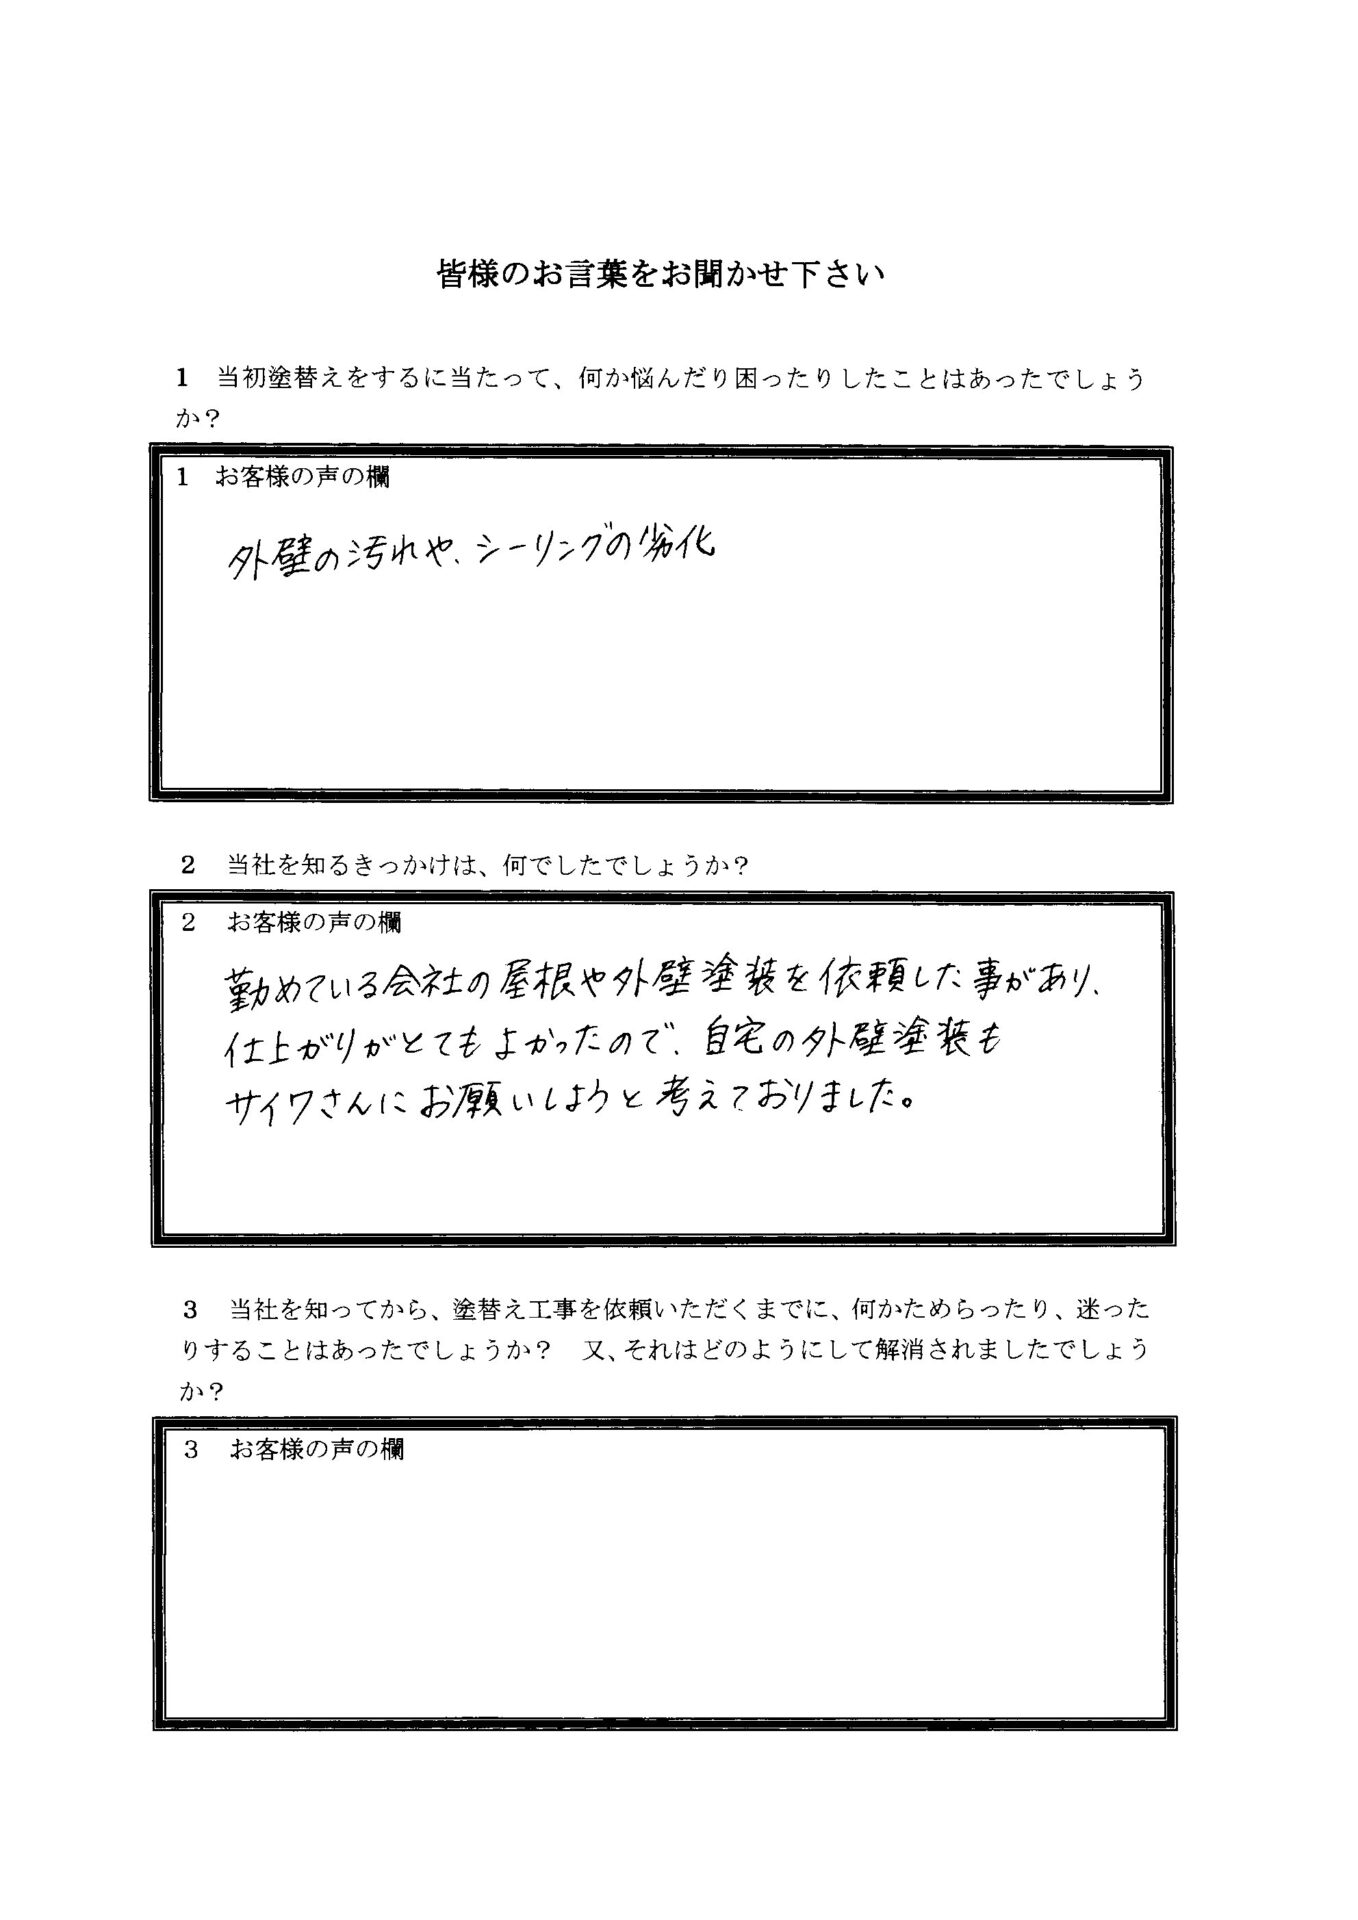 皆様のお言葉をお聞かせ下さい
1　当初塗替えをするに当たって、何か悩んだり困ったりしたことはあったでしょう
か？
1　お客様の声の欄
外壁の汚れや、シーリングの劣化
2　当社を知るきっかけは、何でしたでしょうか？
2　お客様の声の欄
勤めている会社の屋根や外壁塗装を依頼した事があり、
仕上がりがとてもよかったので、自宅の外壁塗装も
サイワさんにお願いしようと考えておりました。
3　当社を知ってから、塗替え工事を依頼いただくまでに、何かためらったり、迷った
りすることはあったでしょうか？　又、それはどのようにして解消されましたでしょう
か？
3　お客様の声の欄